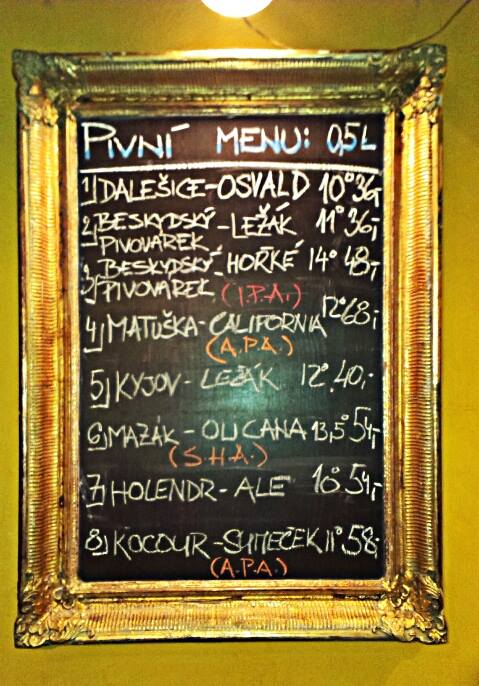 PIVNÍ MENU: 0,5L
1) DALEŠICE-OSVALD 10° 36,-
2) BESKYDSKÝ PIVOVÁREK -LEŽÁK 11° 36,-
3) BESKYDSKÝ PIVOVÁREK -HOŘKÉ 14° 48,-
(I.P.A.)
4) MATUŠKA-CALIFORNIA 12° 68,-
(A.P.A.)
5) KYJOV-LEŽÁK 12° 40,-
6) MAZÁK-OLICANA 13,5° 54,-
(S.H.A.)
7) HOLENDR-ALE 54,-
8) KOCOUR-SUMEČEK 11° 58,-
(A.P.A.)